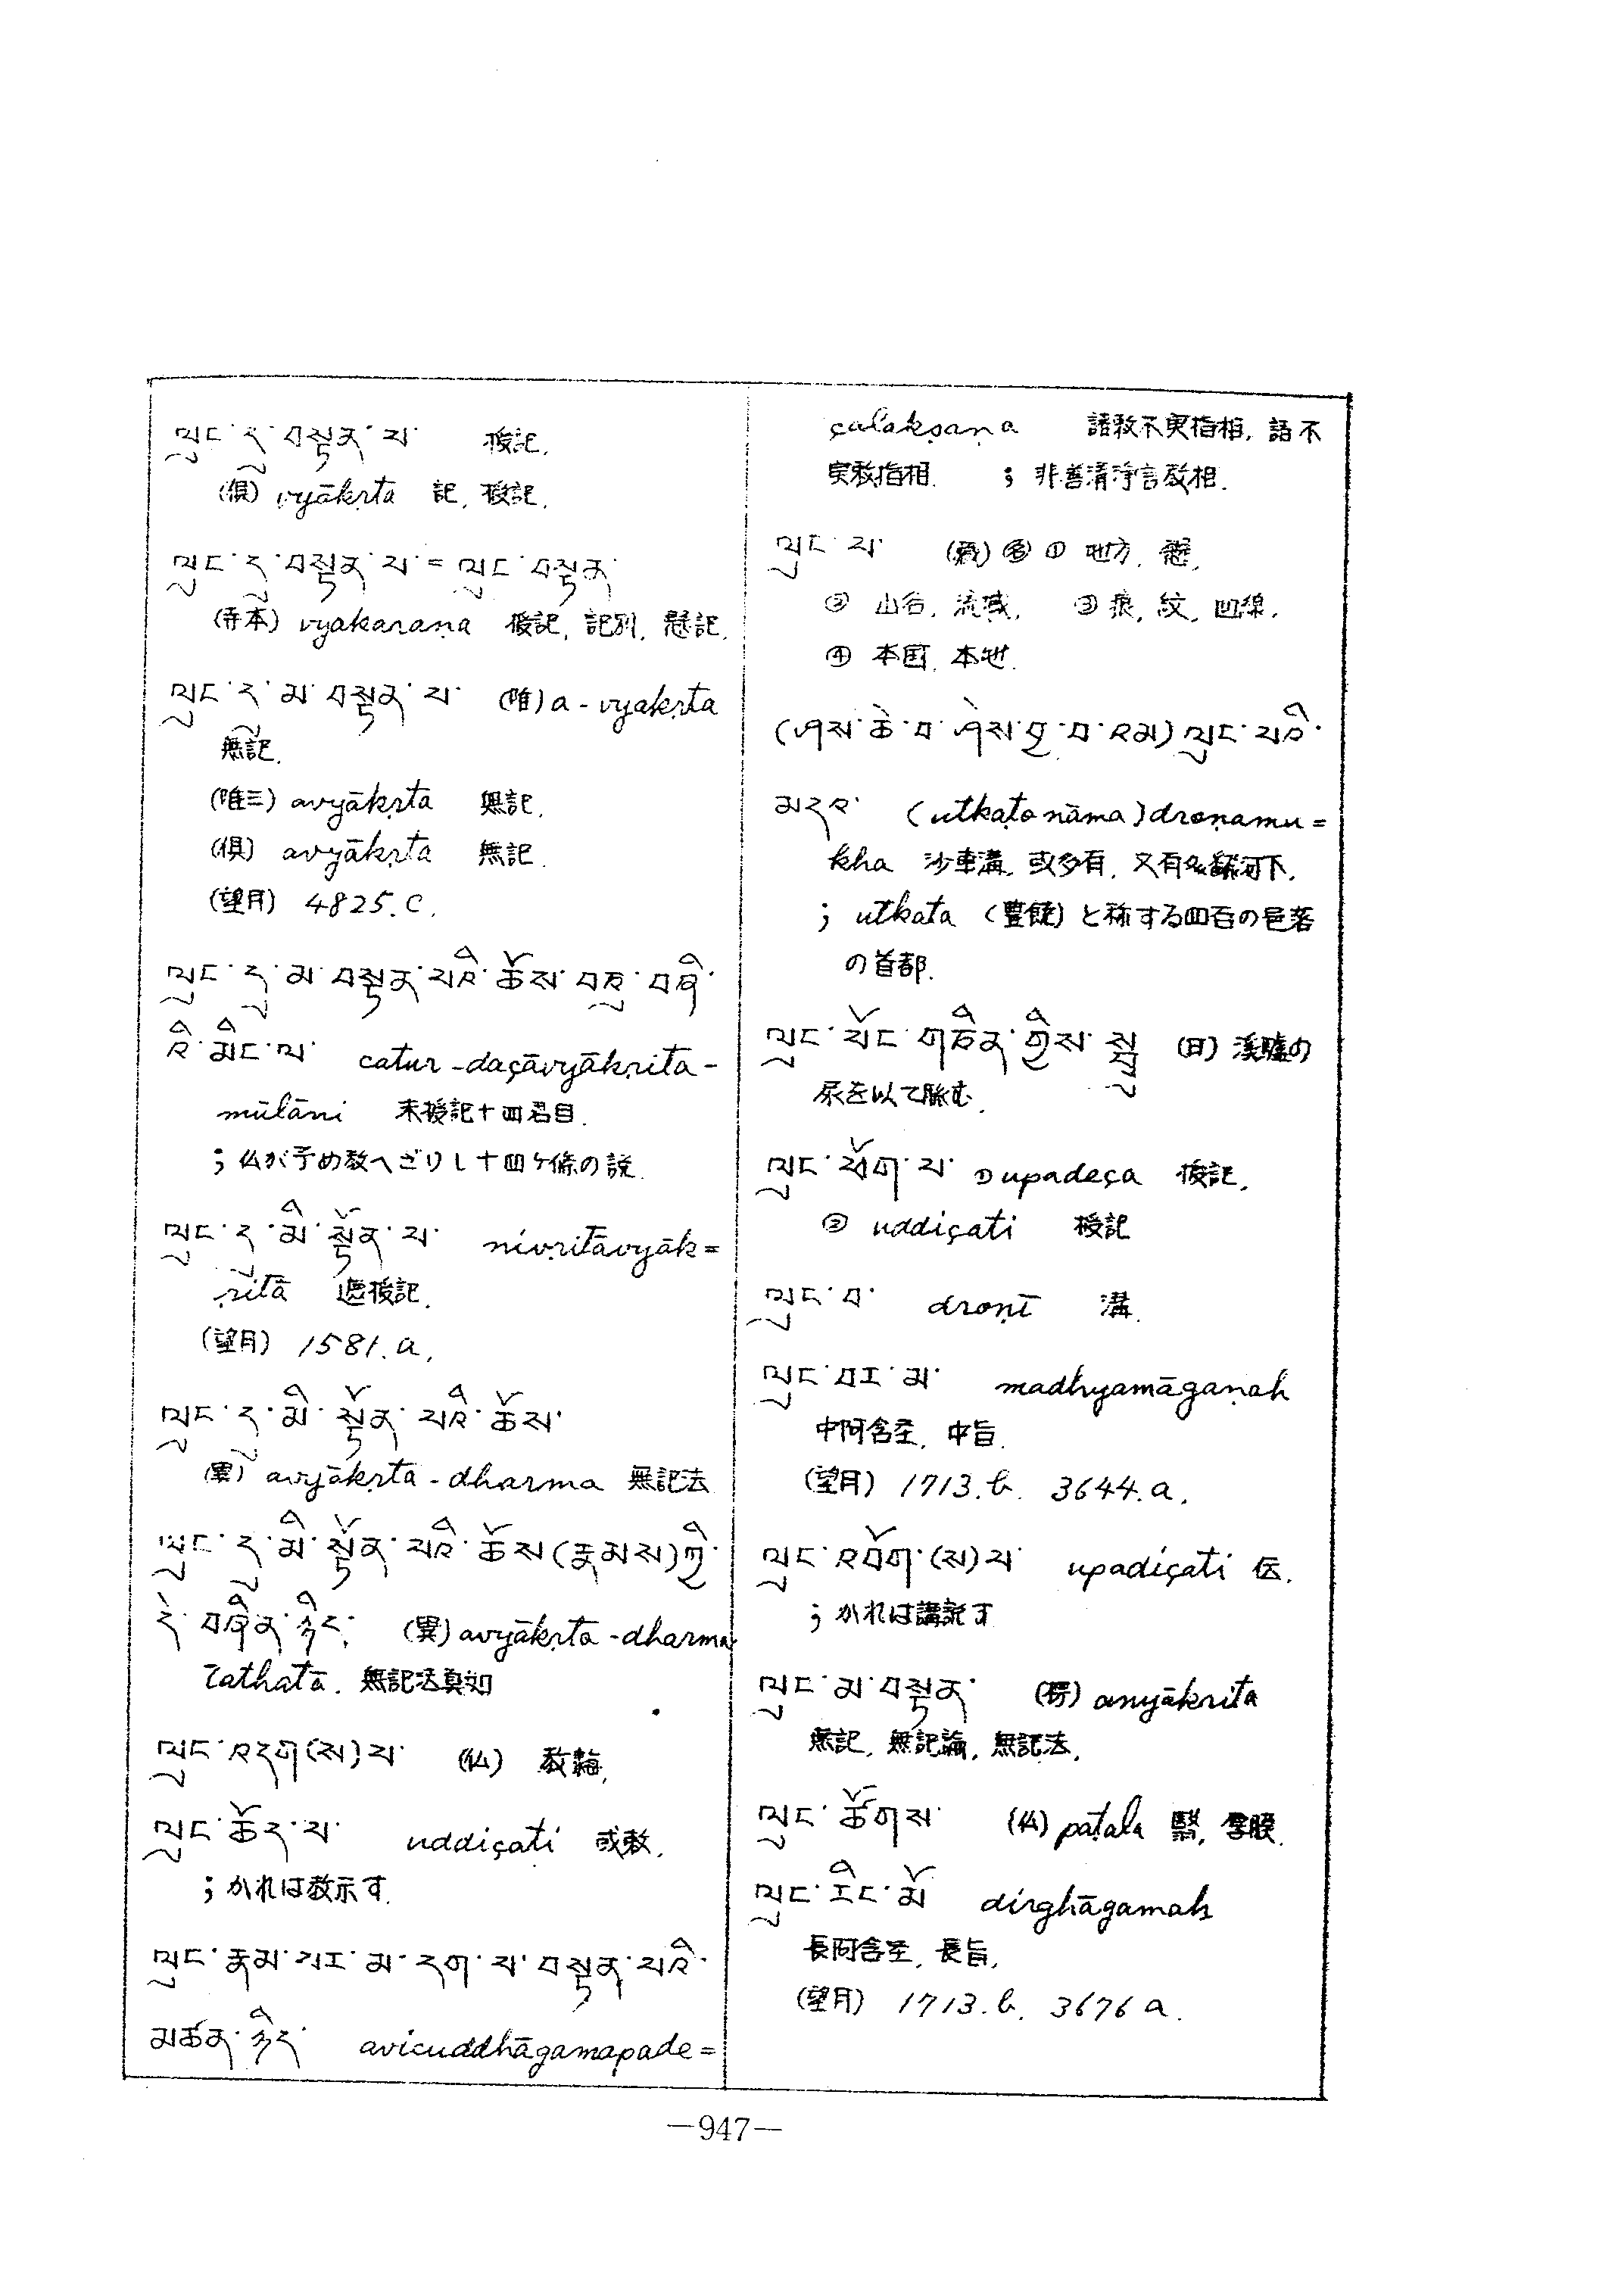 ལུང་དུ་བསྟན་པ་ 授記.
(倶) vyākṛta 記, 授記.
ལུང་དུ་བསྟན་པ་ = ལུང་བསྟན་
(寺本) vyakaraṇa 授記, 記別, 懸記.
ལུང་དུ་མ་བསྟན་པ་ (唯) a-vyakṛta
無記.
(唯三) avyākṛta 無記.
(倶) avyākṛta 無記.
(望月) 4825.c.
ལུང་དུ་མ་བསྟན་པའི་ཆོས་བཅུ་བཞི་
འི་མིང་ལ་ catur-daçāvyākṛita-
mūlāni 未授記十四君目.
; 仏が予め教へざりし十四ケ條の説.
ལུང་དུ་མི་སྟོན་པ་ nivṛitāvyāk=
ṛitā 遮授記.
(望月) 1581.a.
ལུང་དུ་མི་སྟོན་པའི་ཆོས་
(異) avyākṛta-dharma 無記法
ལུང་དུ་མི་སྟོན་པའི་ཆོས(རྣམས)ཀྱི་
དེ་བཞིན་ཉིད་ (異) avyākṛta-dharma
tathatā. 無記法真如
ལུང་འདག(ས)པ་ (仏) 教
ལུང་ཚོད་པ་ uddiçati 或教.
; かれは教示す.
ལུང་རྣམ་པར་མ་དག་པ་བསྟན་པའི་
མཚན་ཉིད་ avicuddhāgamapade=
çalakṣaṇa 語教不実指相, 語不
実教指相. ; 非善清淨言教相.
ལུང་པ་ ① 地方,
② 山谷, 流域, ③ 痕, 紋, 凹線.
④ 本国, 本地.
(ཤས་ཆེ་བ་ཞེས་བྱ་བ་འམ)ལུང་པའི་
མདའ་ (utkaṭo nāma) droṇamu=
kha 沙車溝, 或多有, 又有 河下.
; utkata (豊饒) と称する四百の邑落
の首都.
ལུང་པོང་གཅིན་གྱིས་སླ (目) 溪驢の
尿を以て
ལུང་པོག་པ་ ① upadeça 授記.
② uddiçati 授記
ལུང་བ་ droṇī 溝.
ལུང་བར་མ་ madhyamāgaṇah
中阿含箜, 中旨.
(望月) 1713.b. 3644.a.
ལུང་འབོག(ས)པ་ upadiçati 伝.
; かれは講説す
ལུང་མ་བསྟན་ (楞) anyākrita
無記, 無記論, 無記法.
ལུང་ཚོགས་ (仏) paṭala 翳,
ལུང་རིང་མོ dirghāgamah
長阿含箜, 長旨.
(望月) 1713.b. 3676a.
—947—